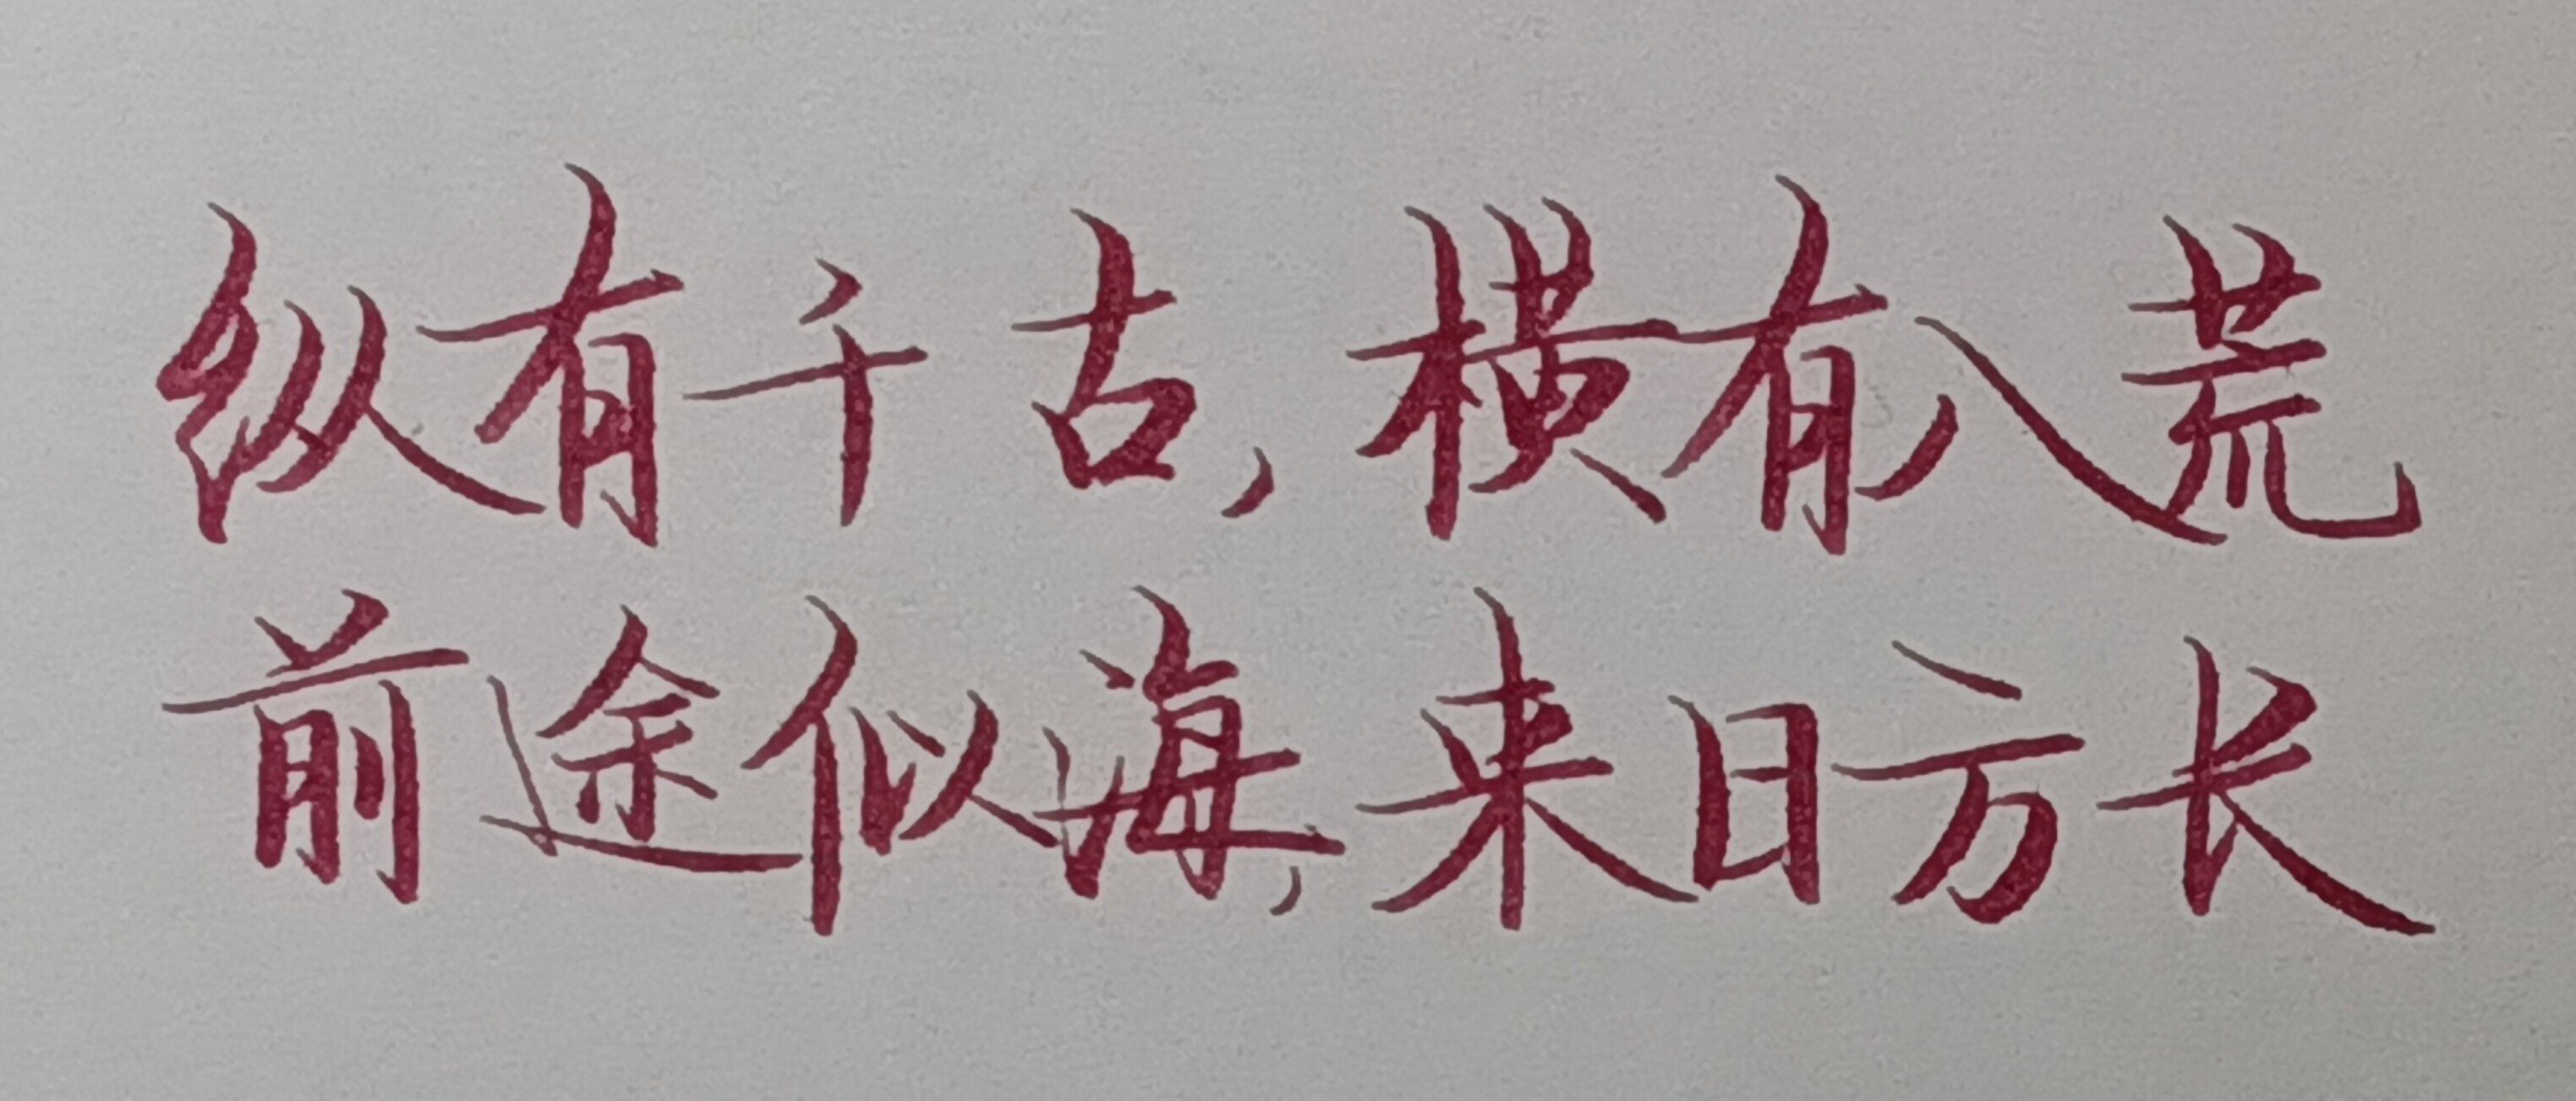 纵有千古,横有八荒
前途似海,来日方长